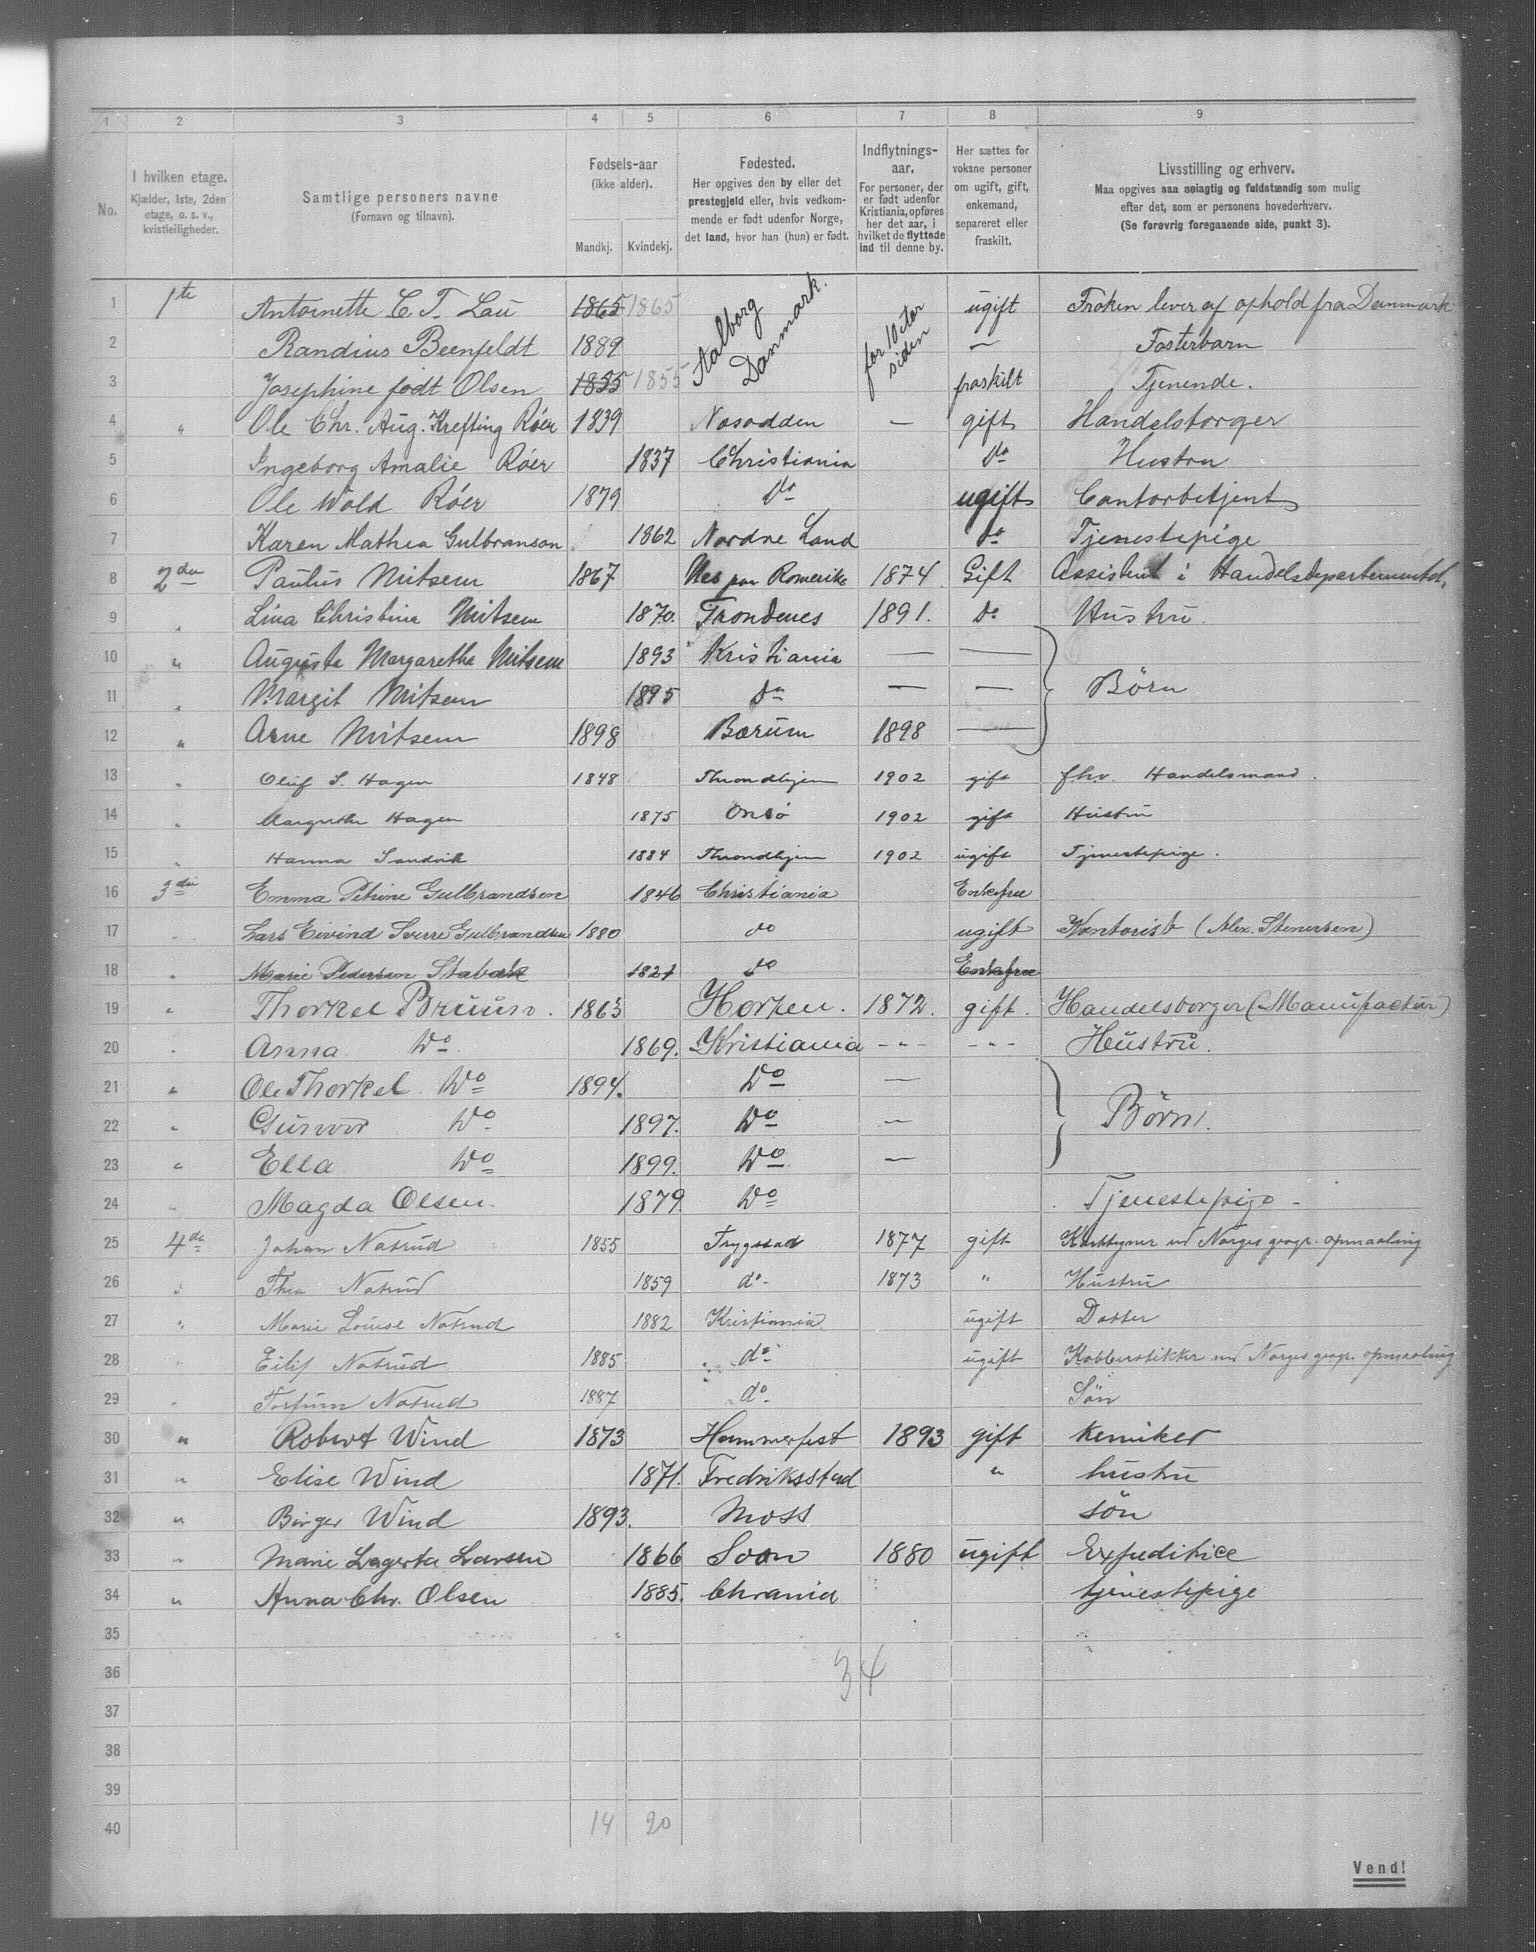 1 2 3 4 5 6 7 8 9
No.
I hvilken etage.
Kjælder, 1ste, 2den etage, o. s. v., kvistleiligheder.
Samtlige personers navne
(Fornavn og tilnavn).
Fødsels-aar
(ikke alder).
Mandkj. Kvindekj.
Fødested.
Her opgives den by eller det prestegjeld eller, hvis vedkommende er født udenfor Norge, det land, hvor han (hun) er født.
Indflytnings-aar.
For personer, der er født udenfor Kristiania, opføres her det aar, i hvilket de flyttede ind til denne by.
Her sættes for voksne personer om ugift, gift, enkemand, separeret eller fraskilt.
Livsstilling og erhverv.
Maa opgives saa nøiagtig og fuldstændig som mulig efter det, som er personens hovederhverv.
(Se forøvrig foregaaende side, punkt 3).
1 1te Antoinette C. T. Lau 1865 1865 Aalborg Danmark. for 10 aar siden ugift Frøken lever af ophold fra Danmark
2 Randius Beenfeldt 1889 — Fosterbarn
3 Josephine født Olsen 1855 1855 fraskilt Tjenende.
4 " Ole Chr. Aug. Krefting Röer 1839 Nesodden — gift Handelsborger
5 Ingeborg Amalie Röer 1837 Christiania do Hustru
6 Ole Wold Röer 1879 do ugift Contorbetjent
7 Karen Mathea Gulbranson 1862 Nordre Land do Tjenestepige
8 2den Paulus Mitsem 1867 Nes paa Romerike 1874 Gift Assistent i Handelsdepartementet.
9 " Lina Christina Mitsem 1870. Trondenes 1891. do Hustru.
10 " Augusta Margaretha Mitsem 1893 Kristiania — — Børn
11 " Margit Mitsem 1895 do — —
12 " Arne Mitsem 1898 Bærum 1898 —
13 " Oluf S. Hagen 1848 Throndhjem 1902 gift fhv. Handelsmand.
14 " Margrethe Hagen 1875 Onsö 1902 gift Hustru
15 " Hanna Sandvik 1884 Throndhjem 1902 ugift Tjenestepige.
16 3die Emma Petrine Gulbrandsen 1846 Christiania Enkefrue
17 " Lars Eivind Sverre Gulbrandsen 1880 do ugift Kontorist (Alex. Stenersen)
18 " Marie Pedersen Stabæk 1821 do Enkefrue
19 " Thorkel Bruun. 1863 Horten. 1872. gift. Handelsborger (Manufactur)
20 " Anna Do 1869. Kristiania - " - - " - Hustru.
21 " Ole Thorkel Do 1894. Do — Børn.
22 " Gunvor Do 1897. Do —
23 " Ella Do 1899. Do —
24 " Magda Olsen. 1879. Do Tjenestepige -
25 4de Johan Natrud 1855 Trygstad 1877 gift Karttegner ved Norges geogr. opmaaling
26 " Thea Natrud 1859 do. 1873 " Hustru
27 " Marie Louise Natrud 1882 Kristiania ugift Datter
28 " Eilif Natrud 1885 do ugift Kobberstikker ved Norges geogr. opmaaling
29 " Torfinn Natrud 1887 do. Sön
30 " Robert Wind 1873 Hammerfest 1893 gift Kemiker
31 " Elise Wind 1871. Fredriksstad " hustru
32 " Birger Wind 1893. Moss sön
33 " Marie Lagerta Larsen 1866 Soon 1880 ugift Expeditrice
34 " Anna Chr. Olsen 1885. Chrania tjenestepige
35
36 34
37
38
39
40 14 20
Vend!